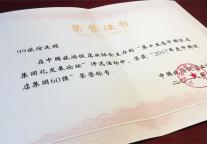 荣誉证书
99旅馆连锁
在中国旅游饭店业协会主办的“第十五届中国饭店
集团化发展论坛”评选活动中，荣获“2017年度中国饭
店集团60强”荣誉称号。